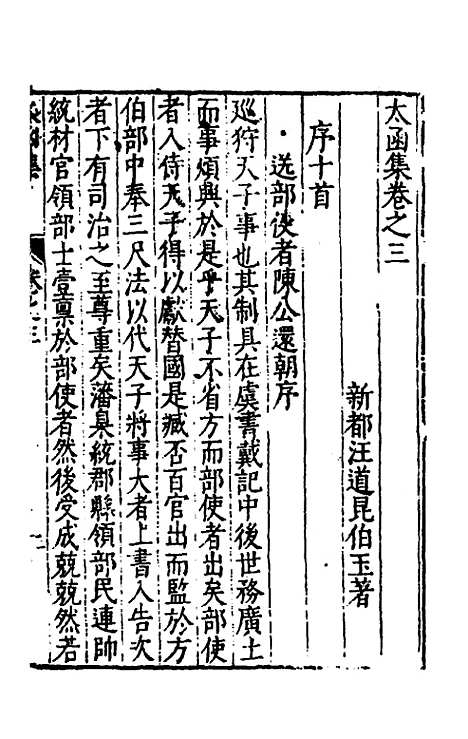 太函集卷之三
新都汪道昆伯玉著
序十首
送部使者陳公還朝序
巡狩天子事也其制具在虞書戴記中後世務廣土
而事煩興於是乎天子不省方而部使者出矣部使
者入侍天子得以獻替國是臧否百官出而監於方
伯部中奉三尺法以代天子將事大者上書入告次
者下有司治之至尊重矣藩臬統郡縣領部民連帥
統材官領部士壹稟於部使者然後受成兢兢然若
卷之三